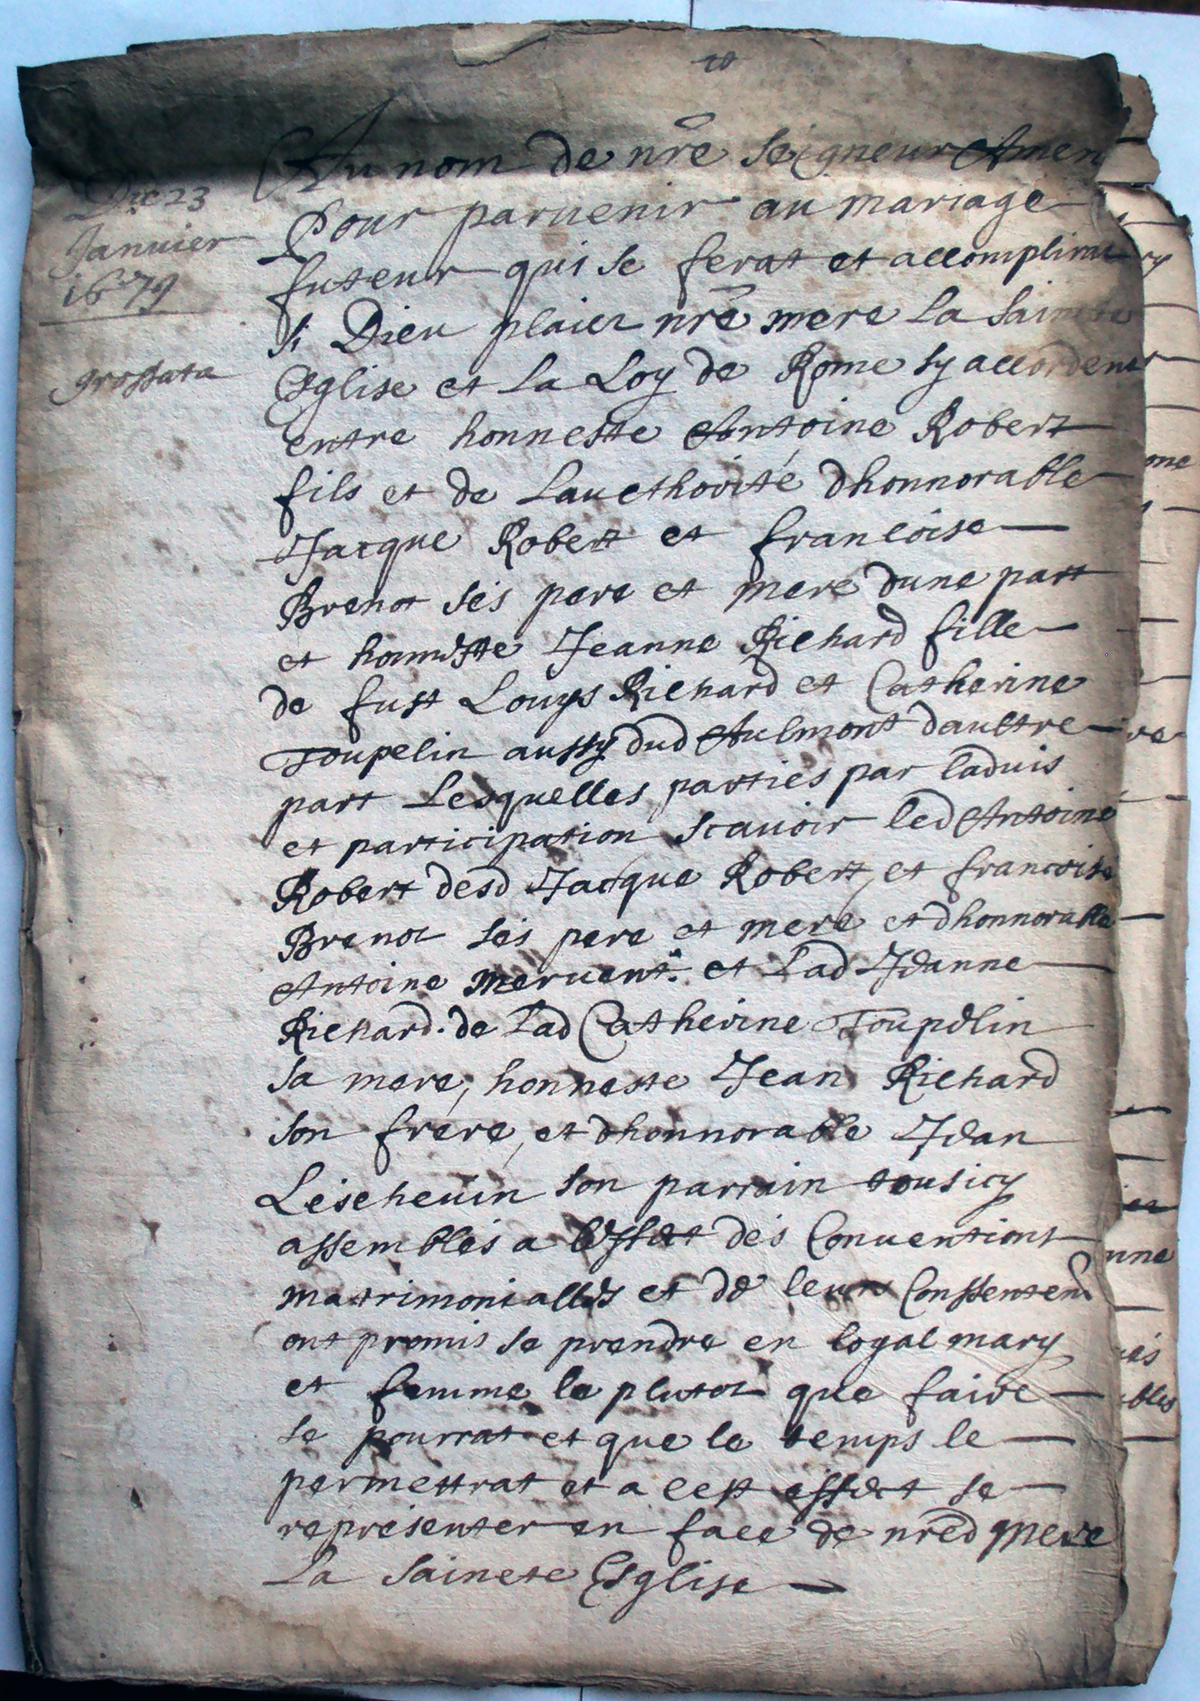 Au nom de nre Seigneur Amen
Die 23
Januier
1679
Grossata
Pour paruenir au mariage
futeur qui se ferat et accomplirat
si Dieu plaict nre mere La Saincte
Esglise et La Loy de Rome sy accordent
entre honneste Antoine Robert
fils et de Laucthorité dhonnorable
Jacque Robert et francoise
Brenot ses pere et mere dune part
et honneste Jeanne Richard fille
de fust Louys Richard et Catherine
Toupelin aussy dud Aulmont daultre
part Lesquelles parties par laduis
et participation scauoir led Antoine
Robert desd Jacque Robert et francoise
Brenot ses pere et mere et dhonnorable
Antoine et Lad Jeanne
Richard de Lad Catherine Toupelin
sa mere, honneste Jean Richard
son frere, et dhonnorable Jean
Leschevin son parrain tous icy
assembles a leffect des Conuentions
matrimonialles et de leurs Conssentemt
ont promis se prendre en loyal mary
et femme le plutot que faire
se pourrat et que le temps le
permettrat et a cest effect se
representer en face de nred mere
La Saincte Esglise